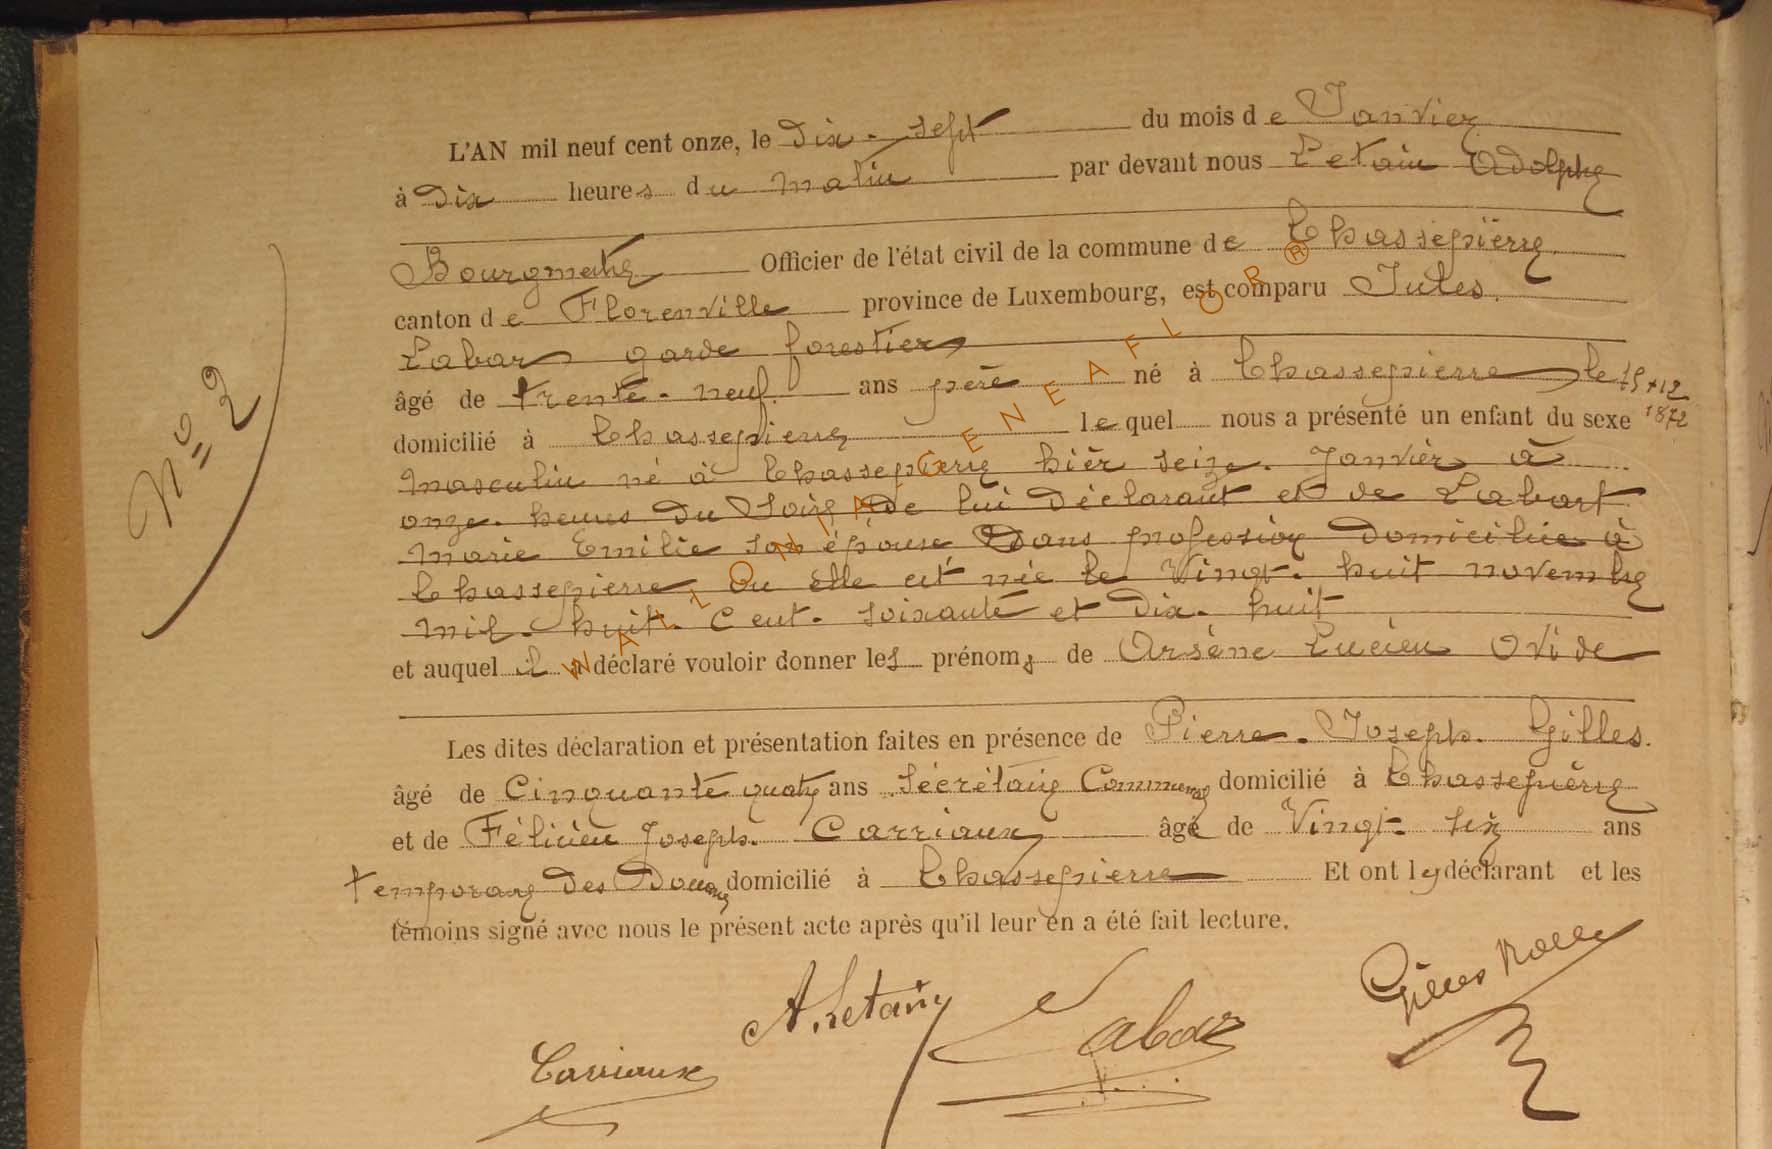 L'AN mil neuf cent onze, le Dix-sept du mois de Janvier
à Dix heures du matin par devant nous Letain Adolphe
Bourgmestre Officier de l'état civil de la commune de Chassepierre
canton de Florenville province de Luxembourg, est comparu Jules
Labar garde forestier
âgé de trente-neuf ans père né à Chassepierre le 15-12
1872
domicilié à Chassepierre lequel nous a présenté un enfant du sexe
masculin né à Chassepierre hier seize Janvier à
onze heures du Soir de lui déclarant et de Labart
Marie Emilie son épouse Sans profession domiciliée à
Chassepierre ou elle est née le Vingt-huit novembre
mil-huit-Cent-soixante et Dix-huit
et auquel il a déclaré vouloir donner les prénoms de Arsène Lucien Ovide
Les dites déclaration et présentation faites en présence de Pierre-Joseph Gilles
âgé de Cinquante quatre ans Sécrétaire Communal domicilié à Chassepierre
et de Félicien Joseph Carriaux âgé de Vingt-six ans
temporaire des Douanes domicilié à Chassepierre Et ont le déclarant et les
témoins signé avec nous le présent acte après qu'il leur en a été fait lecture.
N° 2
A. Letain
Labar
Gilles
Carriaux
WALLONIA GENEAFLOR ®